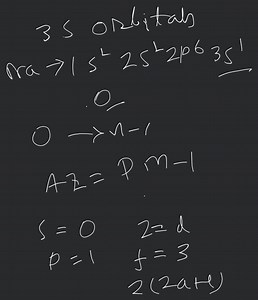 3 S Orbitals
Na → 1 s² 2 s² 2p6 3s¹
0
0 → n-1
AZ = P n-1
S = 0 2 = d
P = 1 f = 3
2(2a+1)